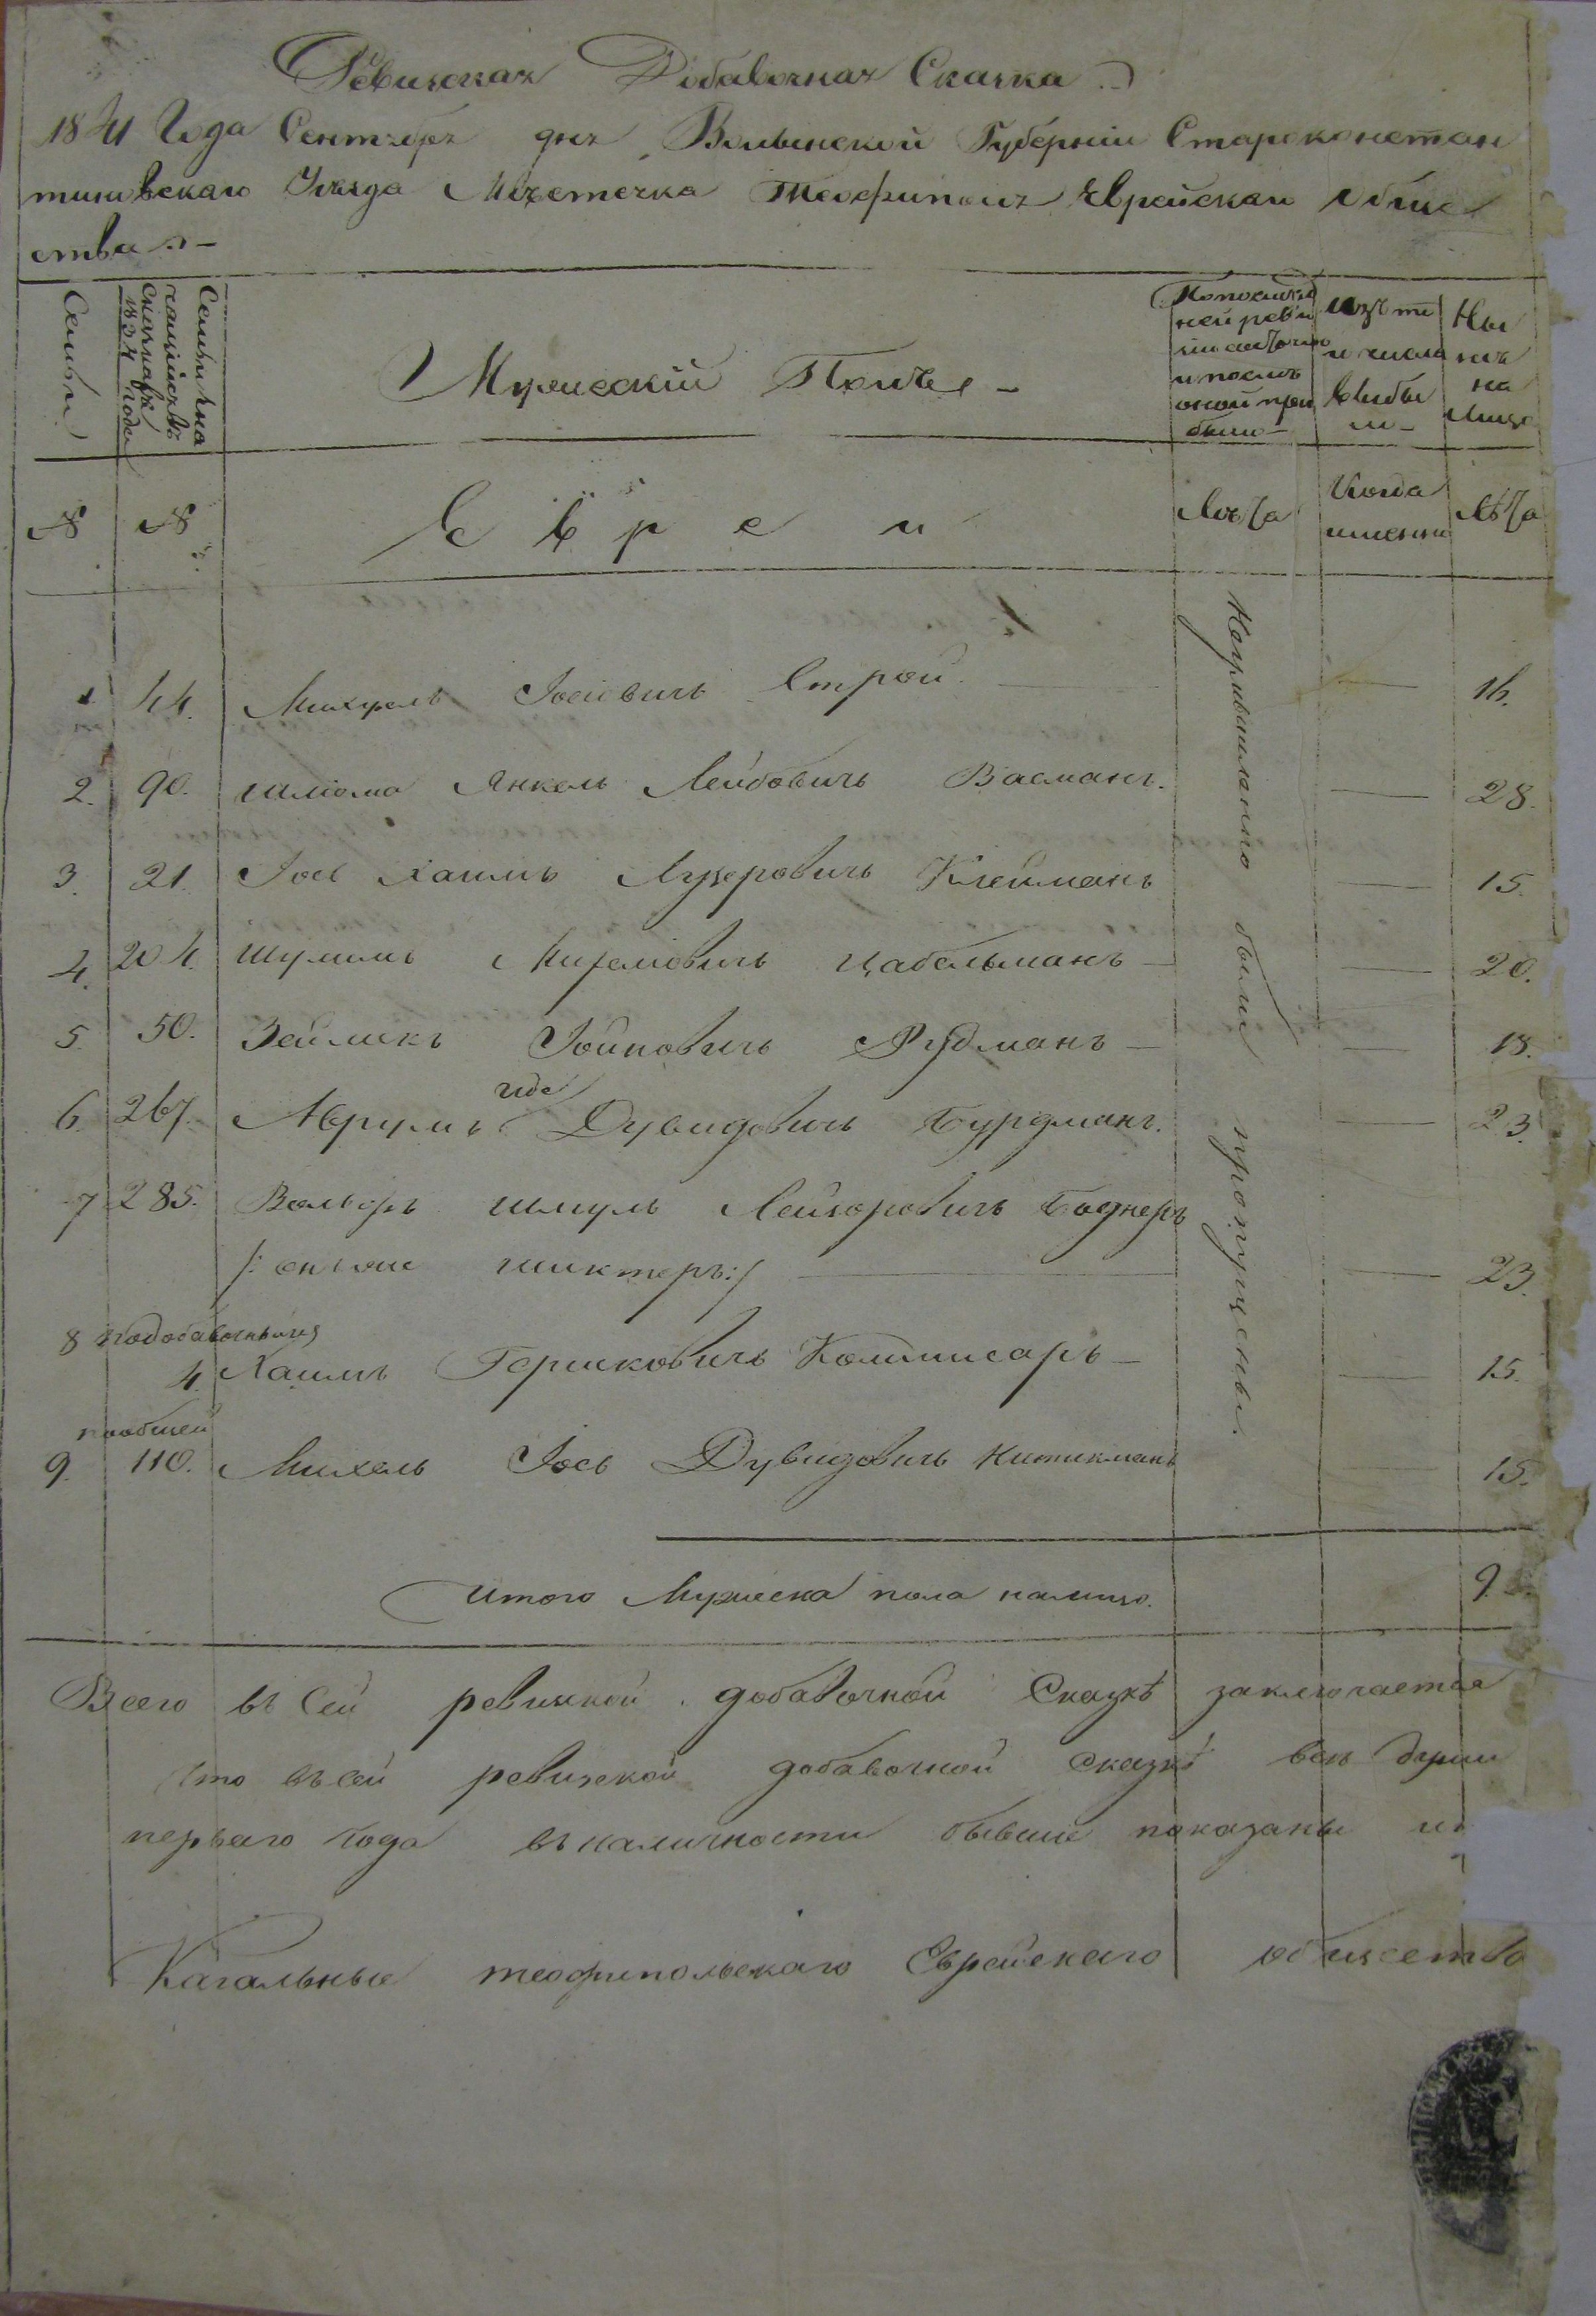 Ревизская Добавочная Сказка
1841 Года Сентября дня Волынской Губернiи Староконстан
тиновскаго Уѣзда Мѣстечка Теофиполя Еврейскаго Обще
ства
Семьи
Семьи по
1834 года
Мужескiй Полъ
По послѣд
ней реви
зiи состояло
и послѣ
оной при
было
Изъ то
го числа
выбы
ло
Ны
нѣ
на
лицо
№ № Евреи Лѣта Когда
именно Лѣта
1 44. Михель Iосiовичъ Строй. 16.
2. 90. Шлiома Янкель Лейбовичъ Васманъ. 28.
3. 21. Iось Хаимъ Лузеровичъ Клейманъ 15.
4. 204. Шулимъ Цабельманъ 20.
5. 50. Зейликъ Iойновичъ Рудманъ 18.
6. 267. Аврумъ Дувидовичъ Бурдманъ. 23.
7 285. Вольфъ Шмуль Лейзоровичъ Боднеръ
/: онъ же Шиктеръ:/ 23.
8 по добавочной
4. Хаимъ Гершковичъ Коммисаръ 15.
по общей
9. 110. Михель Iось Дувидовичъ Китикманъ 15.
Неумышленно были пропущены.
Итого Мужеска пола налицо. 9.
Всего въ сей ревизской добавочной Сказкѣ заключается
что въ сей ревизской добавочной Сказкѣ всѣ души
перваго года въ наличности бывшiе показаны и
Кагальные теофипольскаго Еврейскаго общество